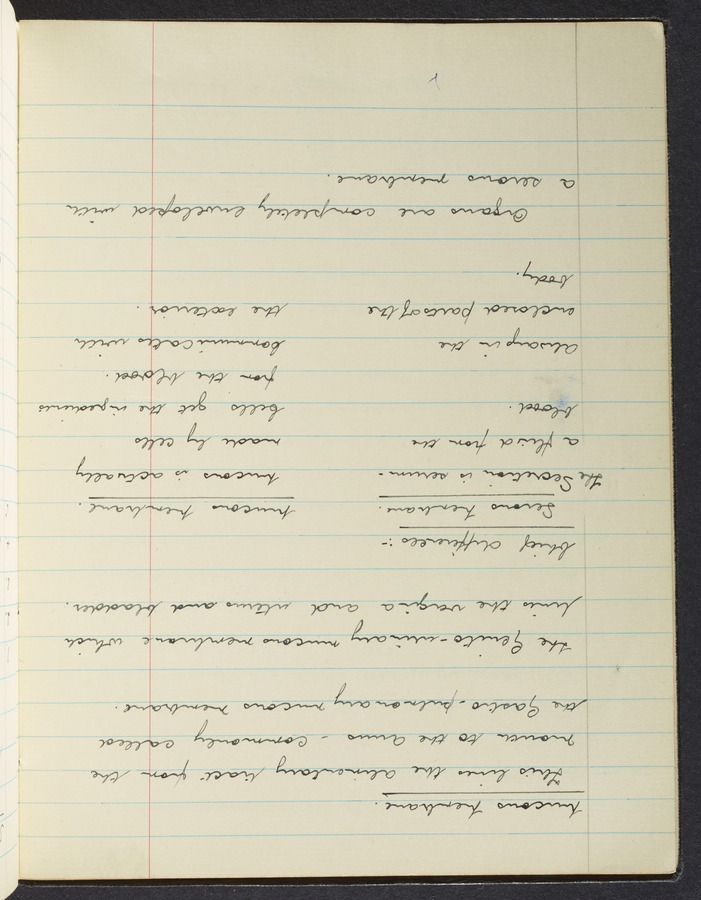 Mucous Membrane.
This lines the alimentary tract from the
mouth to the anus - commonly called
the Gastro-pulmonary mucous membrane.
the Genito-urinary mucous membrane which
lines the vagina and uterus and bladder.
Chief differences :-
Serous Membrane.
The Secretion is serum -
a fluid from the
blood.
always in the
enclosed parts of the
body.
Mucous Membrane.
Mucous is actually
made by cells
Cells get the ingredients
from the blood.
Communicates with
the exterior.
Organs are completely enveloped with
a serous membrane.